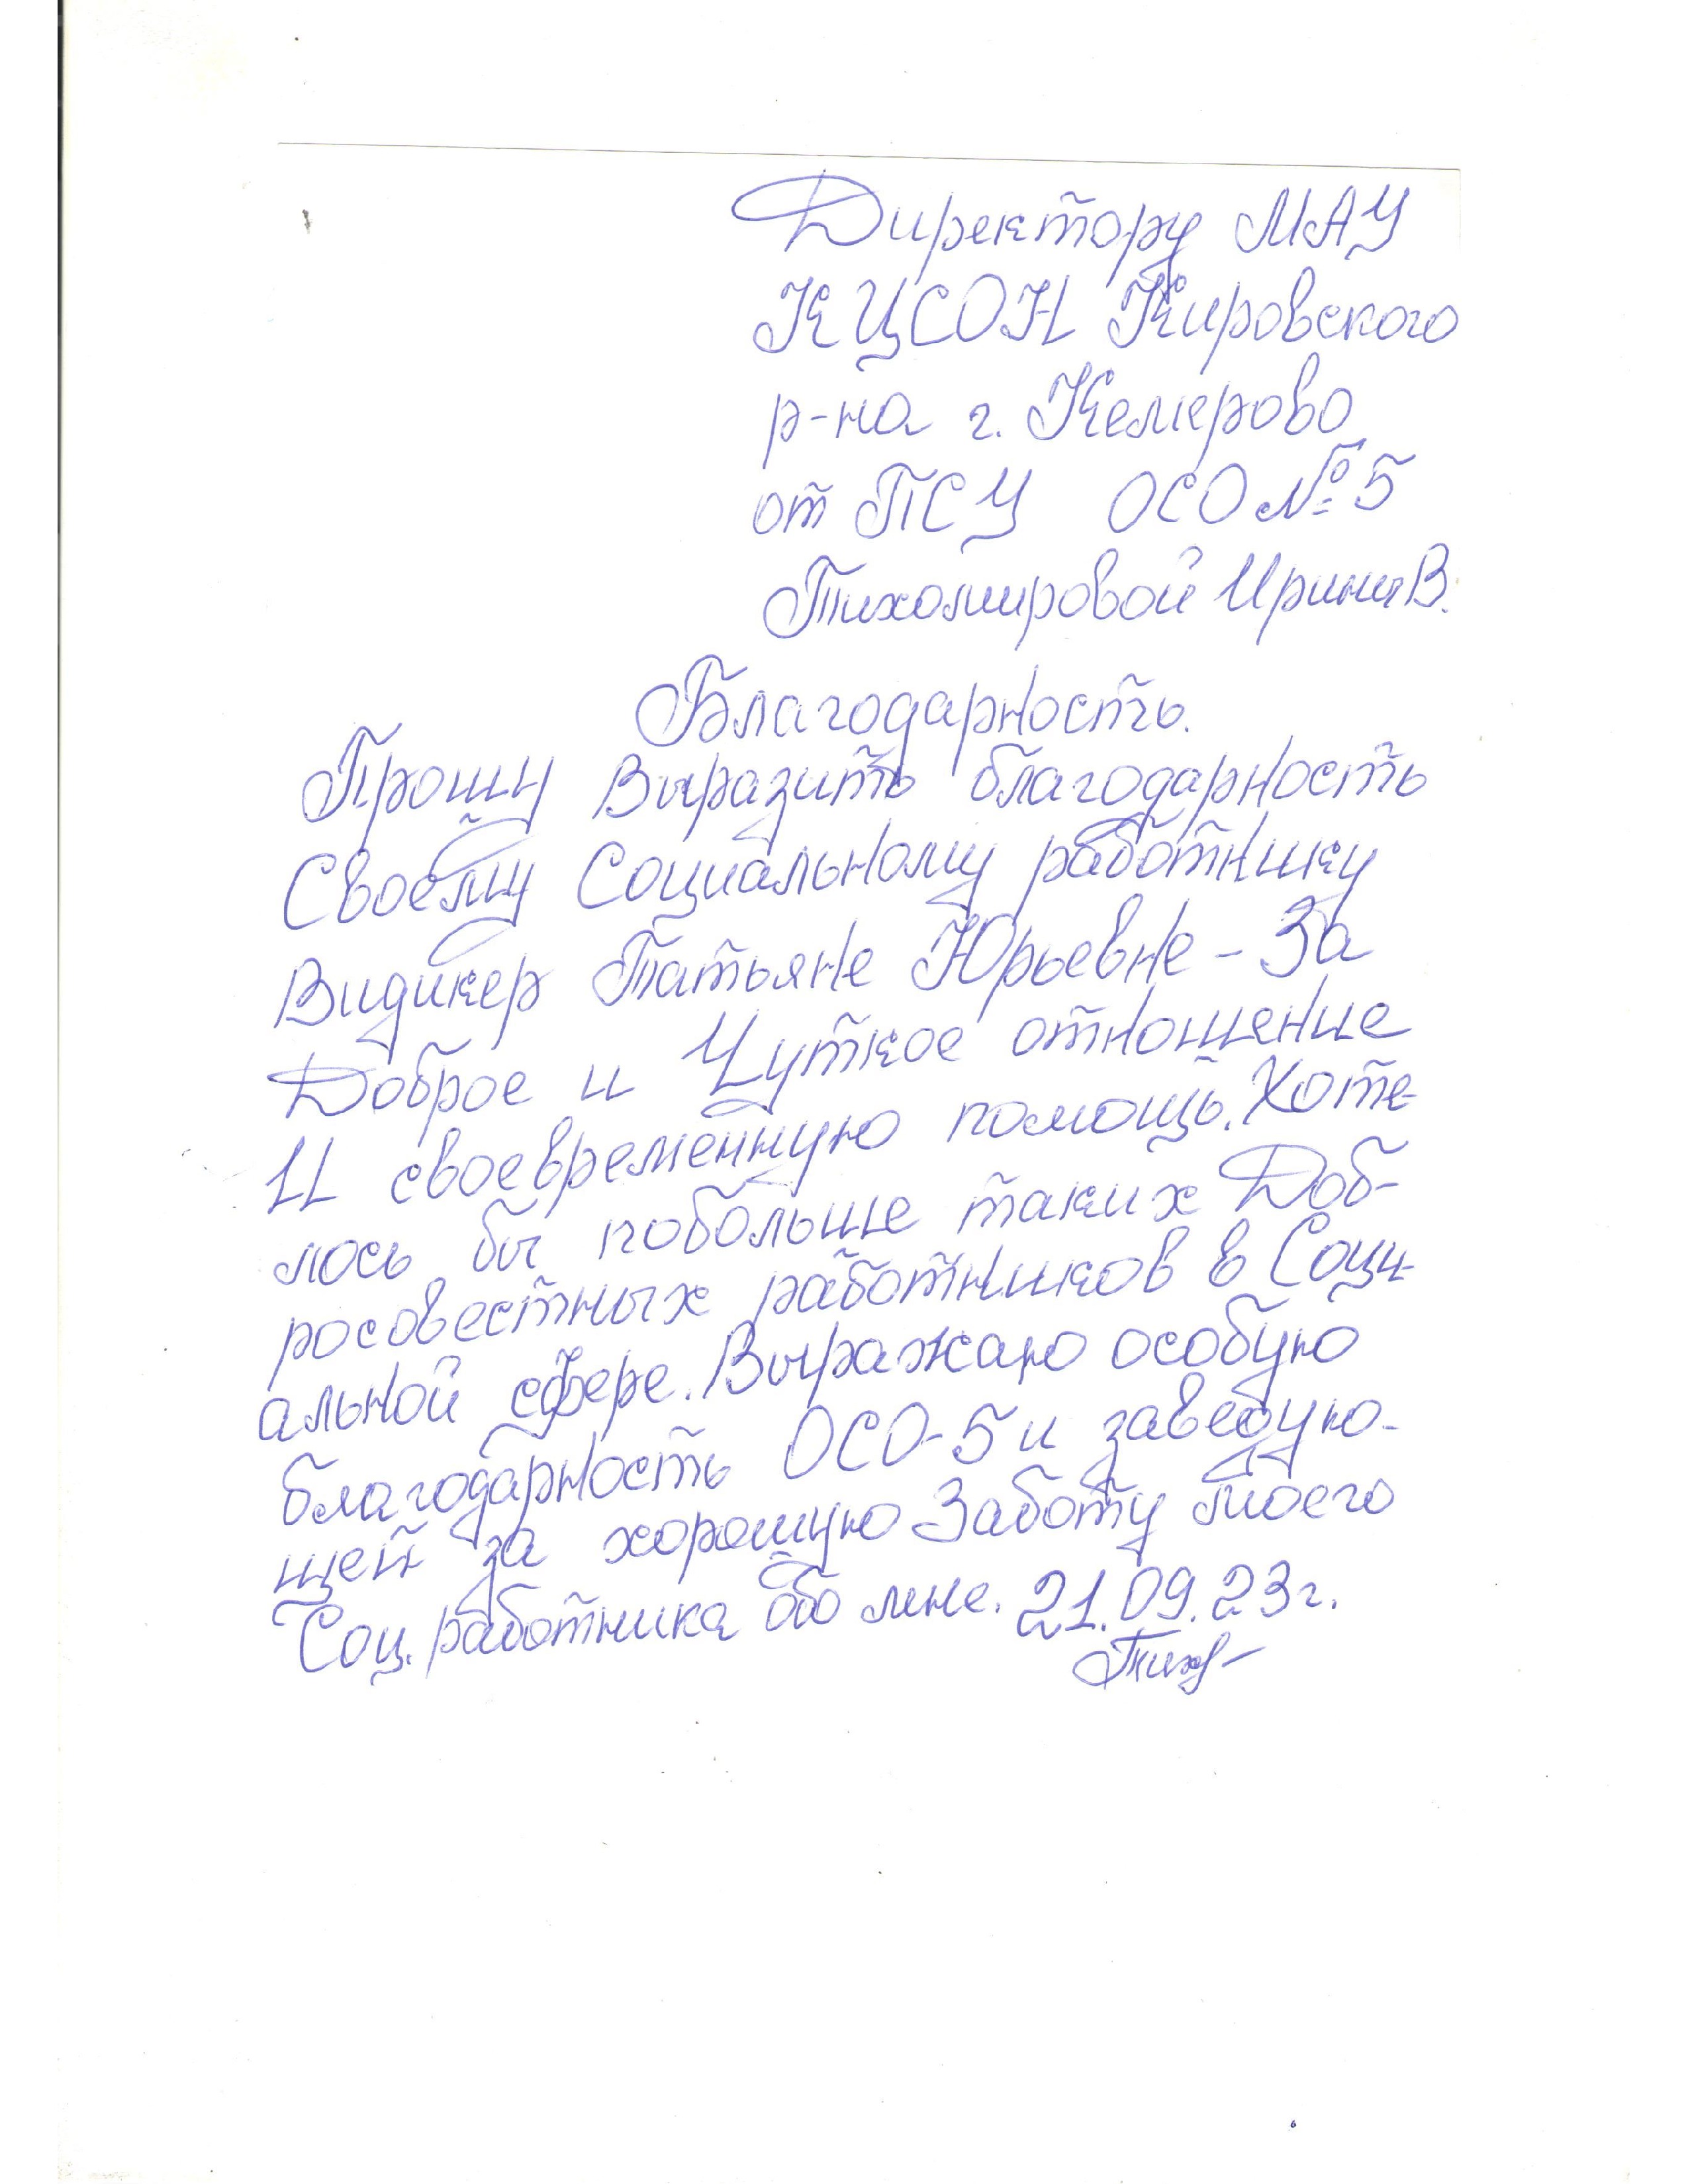 Директору МАУ
КЦСОН Кировского
р-на г. Кемерово
от ПСУ ОСО №5
Тихомировой Ирины В.
Благодарность.
Прошу Выразить благодарность
Своему Социальному работнику
Видикер Татьяне Юрьевне - За
Доброе и Чуткое отношение
И своевременную помощь. Хоте-
лось бы побольше таких Доб-
росовестных работников в Соци-
альной сфере. Выражаю особую
благодарность ОСО-5 и заведую-
щей за хорошую Заботу моего
Соц. работника обо мне. 21.09.23г.
Тих